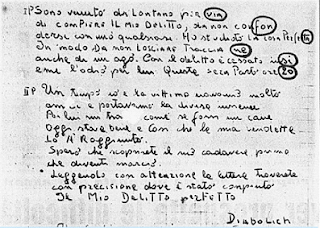 IP Sono venuto da lontano per via
di compiere il mio delitto, da non confon
dersi con mio qualsiasi. Ho studiato la cosa perfetta
in modo da non lasciare traccia ne
anche di un ago. Con il delitto è cessato insi
eme l'odio per lui. Questa sera partirò
IIP Un tempo io e la vittima eravamo molto
amici e portavamo la divisa insieme
Per lui ma come se fossi un cane
Oggi stava bene e con che la mia vendetta
lo à Raggiunto.
Spero che scoprirete il mio cadavere prima
che diventi marcio.
Leggendo con attenzione le lettere troverete
con precisione dove è stato compiuto
Il Mio Delitto perfetto
Diabolich